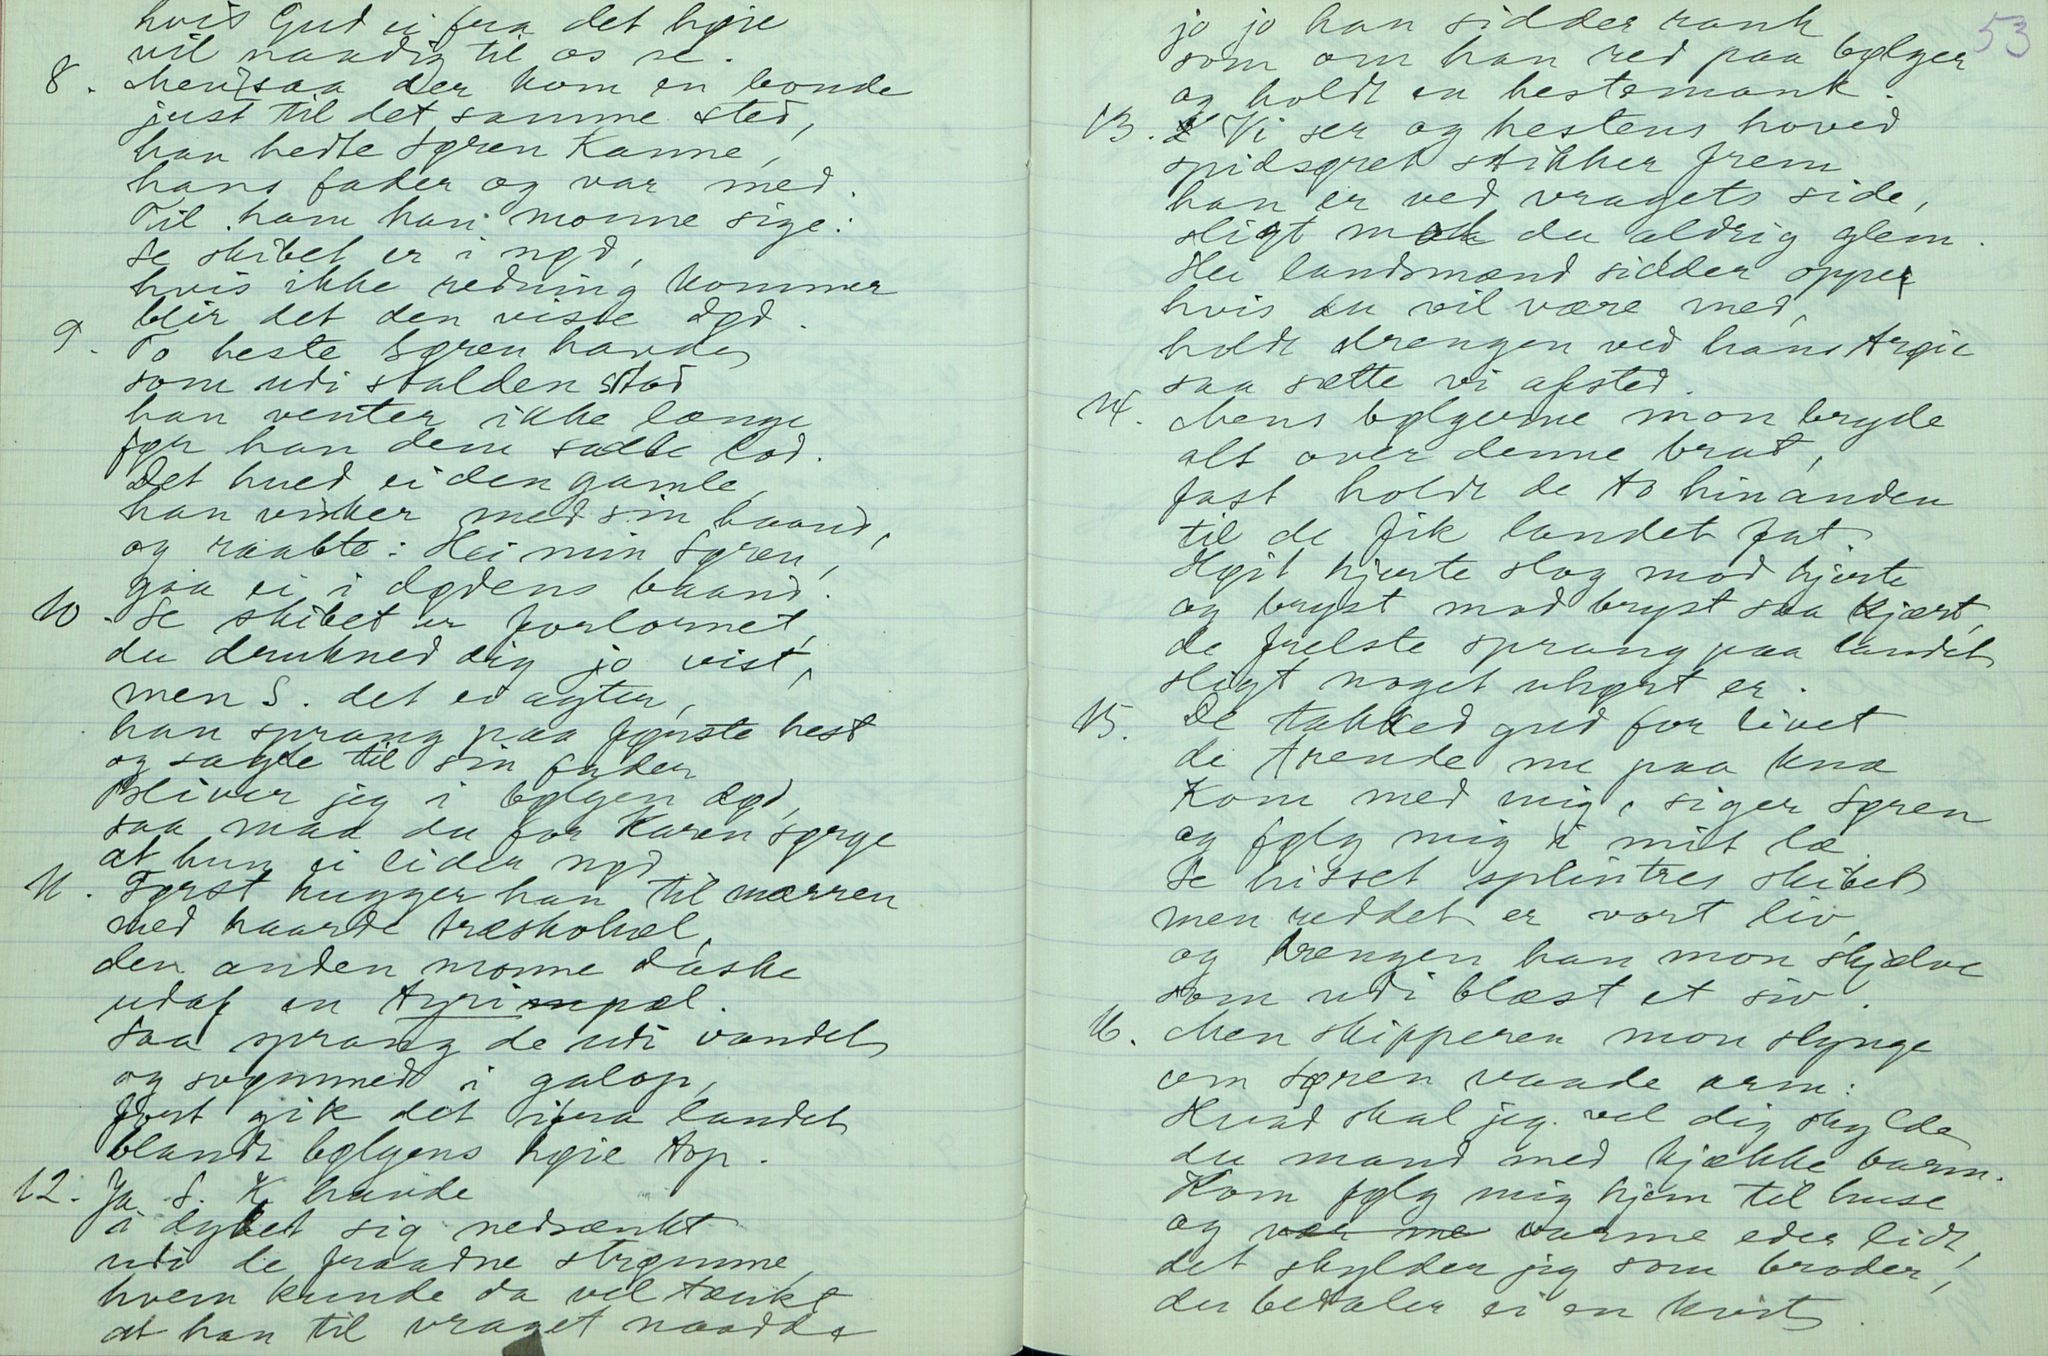 hvis Gud ei fra det høie
vil naadig til os se.
8. Men saa der kom en bonde
just til det samme sted,
han hedte Søren Kanne,
hans fader og var med.
Til ham han monne sige:
se skibet er i nød,
hvis ikke redning kommer
blir det den visse død.
9. To heste Søren havde
som udi stalden stod
han venter ikke længe
før han dem sadle lod.
Det hued ei den gamle,
han vinker med sin haand,
og raabte: Hei min Søren,
gaa ei i dødens baand.
10. Se skibet er forlornet,
du drukned dig jo vist,
men S. det ei agter,
han sprang paa første hest
og sagde til sin fader
Bliver jeg i bølgen død,
saa maa du for Karen sørge
at hun ei lider nød
11. Først hugger han til mærren
med haarde træskohæl,
den anden monne daske
udaf en tyrimpæl.
Saa sprang de udi vandet
og svømmed i galop,
fort gik det ifra landet
blandt bølgens høie top.
12. Ja S. K. havde
i dybet sig nedsænkt
udi de fraadne strømme,
hvem kunde da vel tænkt
at han til vraget naadde
53
jo jo han sidder rank
som om han red paa bølger
og holdt en hestemank.
13. Vi ser og hestens hoved
spidsøret stikker frem
han er ved vragets side,
sligt mod du aldrig glem.
Hei landsmænd sidder oppe
hvis du vil være med,
holdt drengen ved hans trøie
saa sætte vi afsted.
14. Mens bølgerne mon bryde
alt over denne brat,
fast holdt de to hinanden
til de fik landet fat
Høit hjerte slog mod hjerte
og bryst mod bryst saa kjært,
de frelste sprang paa landet
sligt noget uhørt er.
15. De takked gud for livet
de trende nu paa knæ
Kom med mig, siger Søren
og følg mig i mit læ.
Se hisset splintres skibet
men reddet er vort liv,
og drengen han mon skjælve
som udi blæst et siv.
16. Men skipperen mon slynge
om Søren vaade arm:
Hvad skal jeg vel dig skylde
du mand med kjække barm.
Kom følg mig hjem til huse
og vær me varme eder lidt,
det skylder jeg som broder,
du betaler ei en hvit.